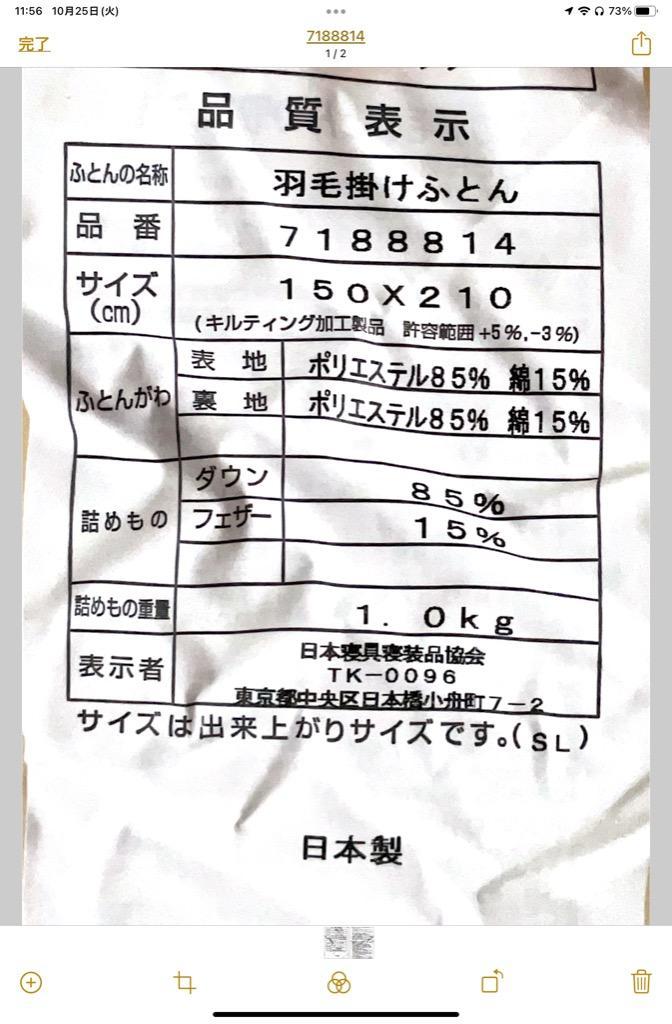 11:56 10月25日(火)
73%
完了
7188814
1/2
品質表示
ふとんの名称 羽毛掛けふとん
品番 7188814
サイズ(cm) 150X210
(キルティング加工製品 許容範囲+5%,-3%)
ふとんがわ 表地 ポリエステル85% 綿15%
裏地 ポリエステル85% 綿15%
詰めもの ダウン 85%
フェザー 15%
詰めもの重量 1.0kg
表示者 日本寝具寝装品協会
TK-0096
東京都中央区日本橋小舟町7-2
サイズは出来上がりサイズです。(SL)
日本製